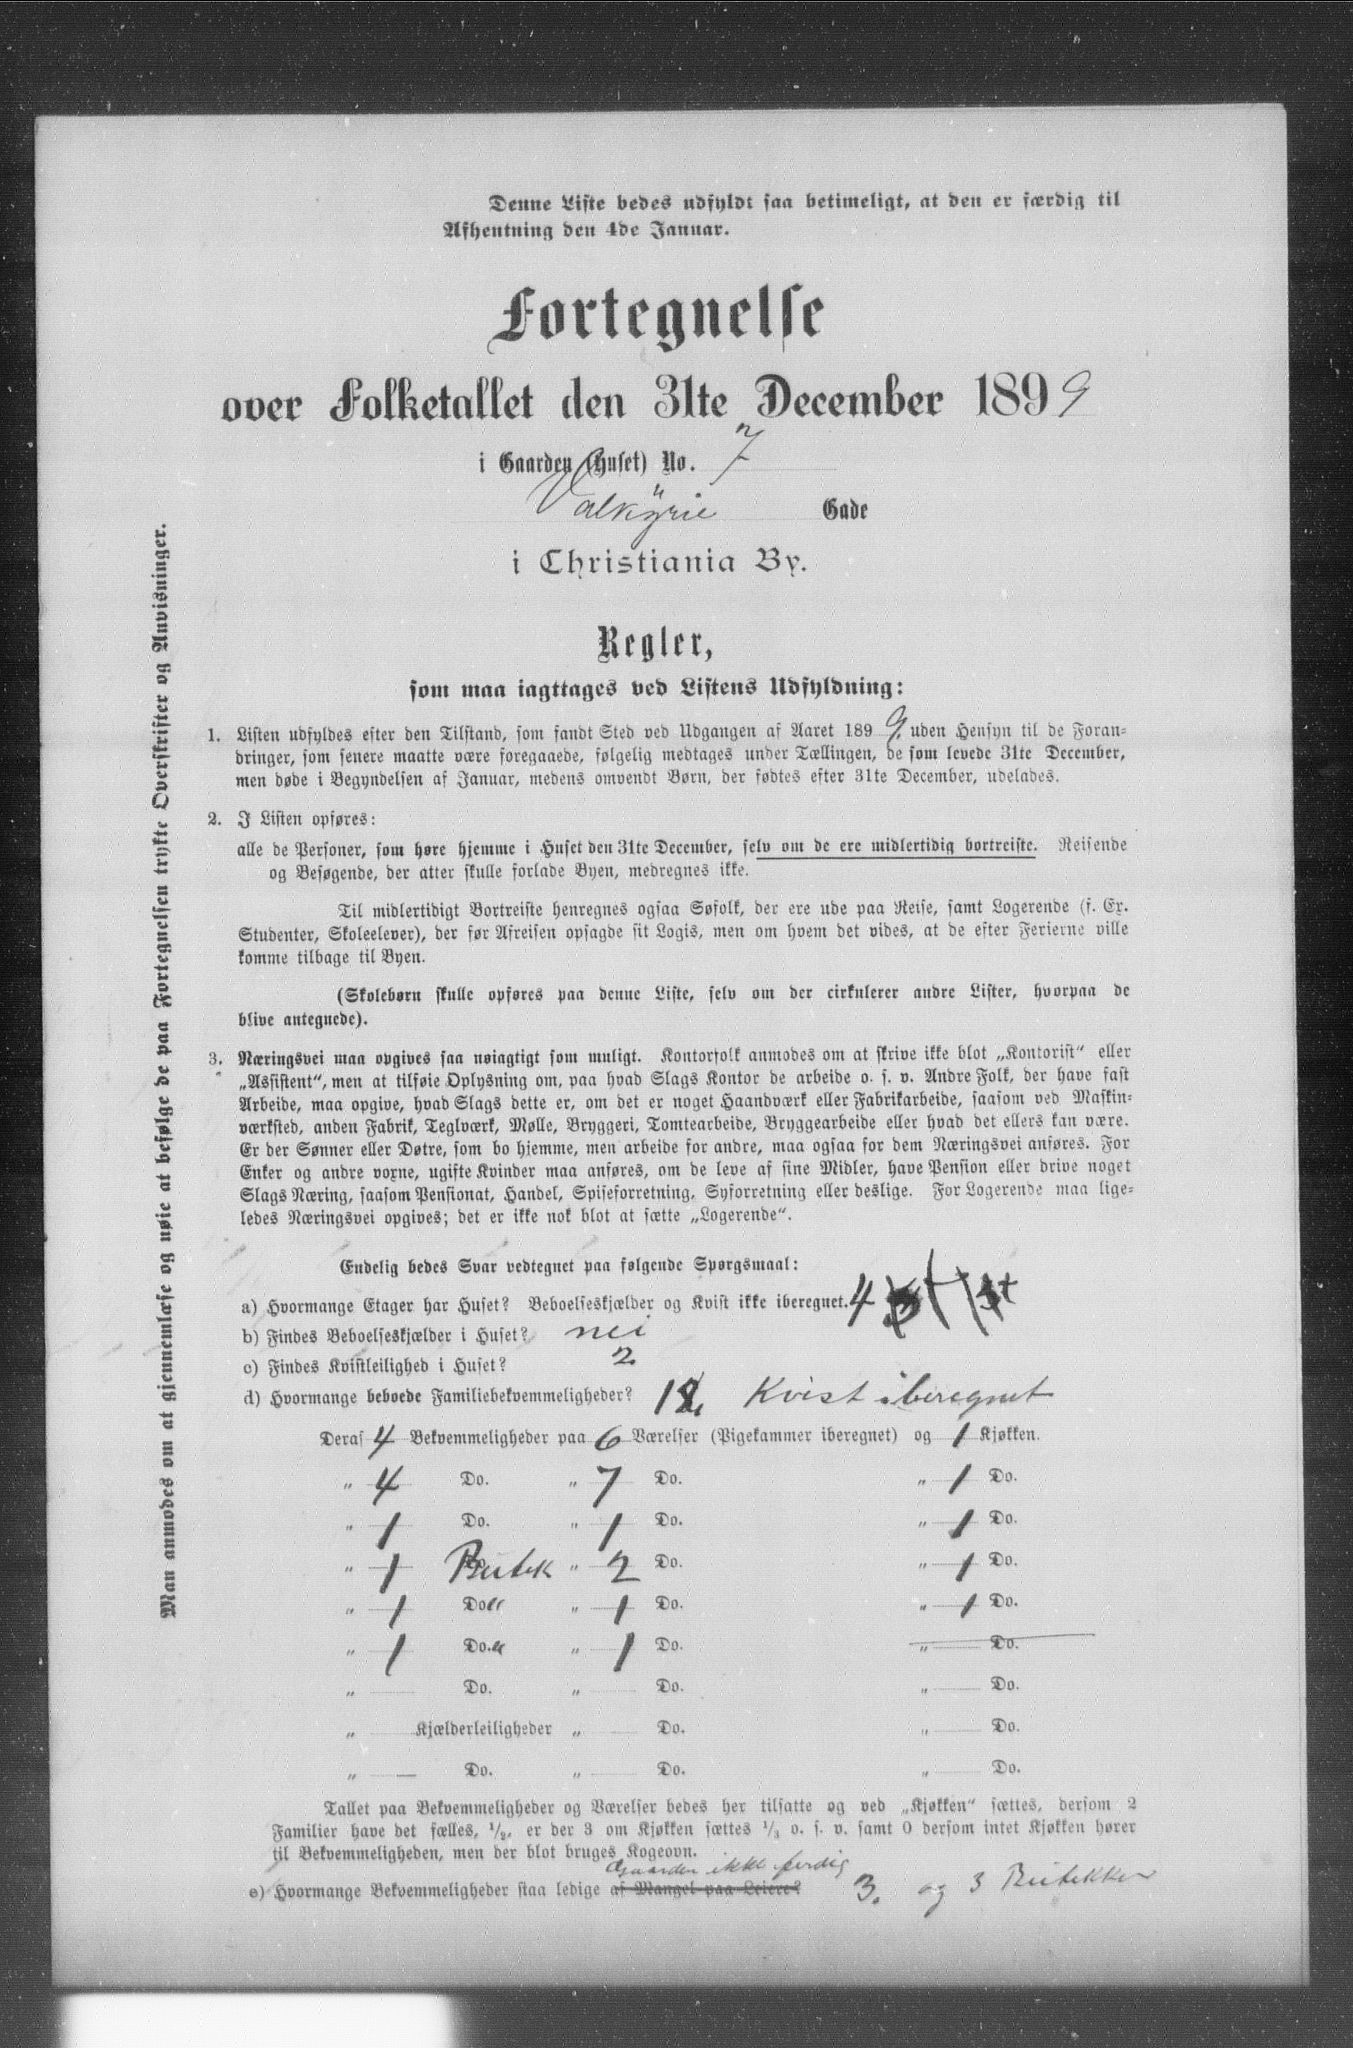 Denne Liste bedes udfyldt saa betimeligt, at den er færdig til
Afhentning den 4de Januar.
Fortegnelse
over Folketallet den 31te December 1899
i Gaarden (Huset) No. 7
Valkÿrie Gade
i Christiania By.
Regler,
som maa iagttages ved Listens Udfyldning:
1. Listen udfyldes efter den Tilstand, som fandt Sted ved Udgangen af Aaret 1899, uden Hensyn til de Foran-
dringer, som senere maatte være foregaaede, følgelig medtages under Tællingen, de som levede 31te December,
men døde i Begyndelsen af Januar, medens omvendt Børn, der fødtes efter 31te December, udelades.
2. I Listen opføres:
alle de Personer, som høre hjemme i Huset den 31te December, selv om de ere midlertidig bortreiste. Reisende
og Besøgende, der atter skulle forlade Byen, medregnes ikke.
Til midlertidigt Bortreiste henregnes ogsaa Søfolk, der ere ude paa Reise, samt Logerende (f. Ex.
Studenter, Skoleelever), der før Afreisen opsagde sit Logis, men om hvem det vides, at de efter Ferierne ville
komme tilbage til Byen.
(Skolebørn skulle opføres paa denne Liste, selv om der cirkulerer andre Lister, hvorpaa de
blive antegnede).
3. Næringsvei maa opgives saa nøiagtigt som muligt. Kontorfolk anmodes om at skrive ikke blot „Kontorist" eller
„Assistent", men at tilføie Oplysning om, paa hvad Slags Kontor de arbeide o. s. v. Andre Folk, der have fast
Arbeide, maa opgive, hvad Slags dette er, om det er noget Haandværk eller Fabrikarbeide, saasom ved Maskin-
værksted, anden Fabrik, Teglværk, Mølle, Bryggeri, Tomtearbeide, Bryggearbeide eller hvad det ellers kan være.
Er der Sønner eller Døtre, som bo hjemme, men arbeide for andre, maa ogsaa for dem Næringsvei anføres. For
Enker og andre voxne, ugifte Kvinder maa anføres, om de leve af sine Midler, have Pension eller drive noget
Slags Næring, saasom Pensionat, Handel, Spiseforretning, Syforretning eller deslige. For Logerende maa lige-
ledes Næringsvei opgives; det er ikke nok blot at sætte „Logerende".
Endelig bedes Svar vedtegnet paa følgende Spørgsmaal:
a) Hvormange Etager har Huset? Beboelseskjælder og Kvist ikke iberegnet. 4
b) Findes Beboelseskjælder i Huset? nei
c) Findes Kvistleilighed i Huset? 2
d) Hvormange beboede Familiebekvemmeligheder? Kvist iberegnet
Deraf 4 Bekvemmeligheder paa 6 Værelser (Pigekammer iberegnet) og 1 Kjøkken.
„ 4 Do. „ 7 Do. „ 1 Do.
„ 1 Do. „ 1 Do. „ 1 Do.
„ 1 Butek „ 2 Do. „ 1 Do.
„ 1 Do „ 1 Do. „ 1 Do.
„ 1 Do. „ 1 Do. „ Do.
„ Do. „ Do. „ Do.
„ Kjælderleiligheder „ Do. „ Do.
„ Do. „ Do. „ Do.
Tallet paa Bekvemmeligheder og Værelser bedes her tilsatte og ved „Kjøkken" sættes, dersom 2
Familier have det fælles, 1/2, er der 3 om Kjøkken sættes 1/3 o. s. v. samt 0 dersom intet Kjøkken hører
til Bekvemmeligheden, men der blot bruges Kogeovn.
Gaarden ikke ferdig
e) Hvormange Bekvemmeligheder staa ledige af Mangel paa Leiere? 3. og 3 Butekker
Man anmodes om at gjennemlæse og nøie at befølge de paa Fortegnelsen trykte Overskrifter og Anvisninger.